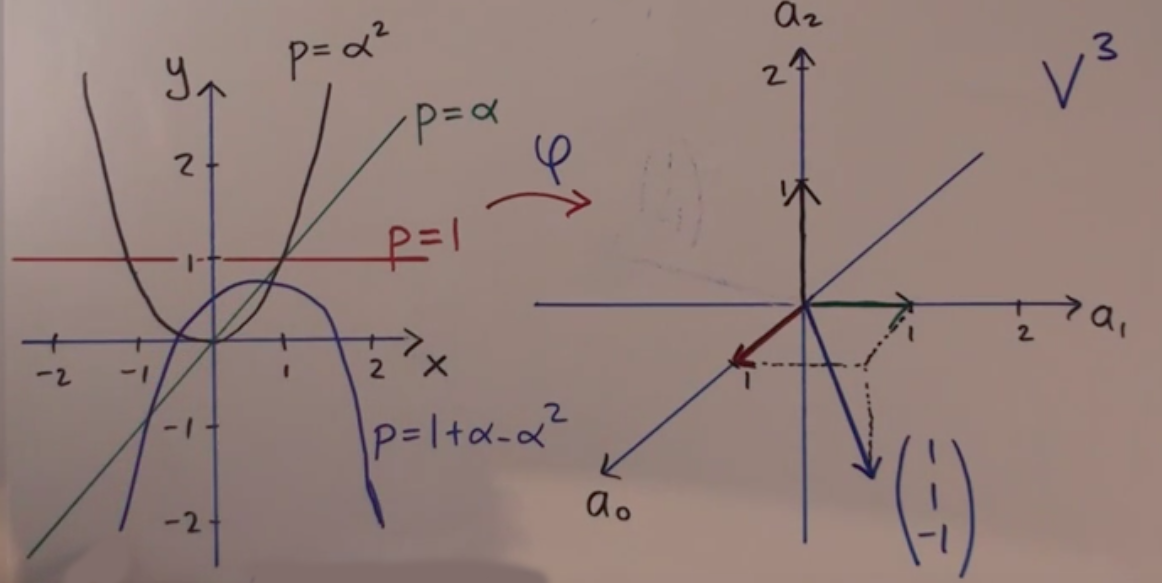 y
p=α²
p=α
2
p=1
1
-2
-1
1
2
x
-1
p=1+α-α²
-2
φ
a₂
V³
2
1
1
2
a₁
1
a₀
1
1
-1